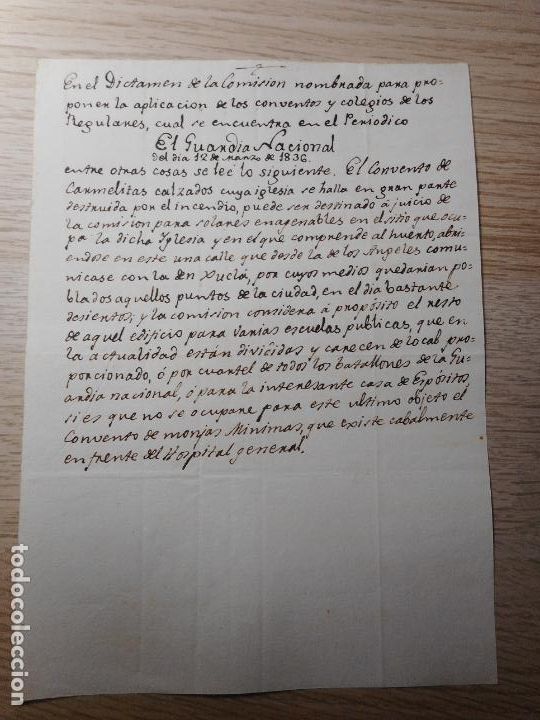 En el Dictamen de la Comision nombrada para pro-
poner la aplicacion de los conventos y colegios de los
Regulares, cual se encuentra en el Periodico
El Guardia Nacional
del dia 12 de marzo de 1836.
entre otras cosas se leé lo siguiente. El Convento de
Carmelitas calzados cuya iglesia se halla en gran parte
destruida por el incendio, puede ser destinado á juicio de
la comision para solares enagenables en el sitio que ocu-
pa la dicha Iglesia y en el que comprende al huerto, abri-
endose en este una calle que desde la de los Angeles comu-
nicase con la d'en Xuclá, por cuyos medios quedarian po-
blados aquellos puntos de la ciudad, en el dia bastante
desientos; y la comision considera á propósito el resto
de aquel edificio para varias escuelas publicas, que en
la actualidad están divididas y carecen de local pro-
porcionado, ó por cuartel de todos los batallones de la Gu-
ardia nacional, ó para la interesante casa de Espósitos
si es que no se ocupare para este ultimo objeto el
Convento de monjas Minimas, que existe cabalmente
en frente del Hospital general."
todocoleccion